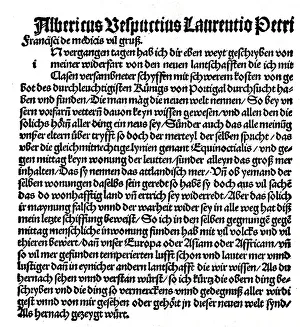 Albericus Vesputius Laurentio Petri
Francisci de medicis vil gruß.
In vergangen tagen hab ich dir eben weyt geschryben von
meiner widerfart von den neuen lantschafften die ich mit
Clasen versambneter schyffen mit schwerem kosten von ge
bot des durchleuchtigisten Künigs von Portigal durchsucht ha
ben vnd funden/ Die man mag die neuen welt nennen/ So bey vn
sern vorfarn vettern dauon keyn wissen gewesen/ vnd allen den die
solichs hörn aller ding ein neus sey/ Sunder auch das alle meinung
vnser eltern über tryfft so doch der merteyl der selben spricht/ das
über die gleichmittnechtige lynien genant Equinoctialis/ vnd ge
gen mittag keyn wonung der leutten/ sunder alleyn das groß mer
inhalten/ Das sy nennen das attlandisch mer/ Vn ob yemand der
selben wonungen daselbs sein geredt so habe sy doch aus vil sachen
das do wonhafftig land vn ertrich sey widerredt/ Aber das solich
ir maynung falsch vnnd der warheit wider sey in alle weg hat diß
mein letzte schiffung bewert/ So ich in den selben gegnung gege
mittag menschliche inwonung funden hab mit vil volcks vnd vil
thieren bewert/ dan vnser Europa oder Asiam oder Affricam/ vn
so vil mer gefunden temperierten lufft schon vnd lauter mer vnnd
lustiger dan in eynicher andern lantschafft die wir wissen/ Als du
hernach sehen vnnd verstan würst/ so ich kürtz die obern ding be
schryben vnd die ding so vermerckens vnnd gedechtnuß aller wirdi
gest vnnd von mir gesehen oder gehört in dieser neuen welt synd/
Als hernach gezeygt würt.